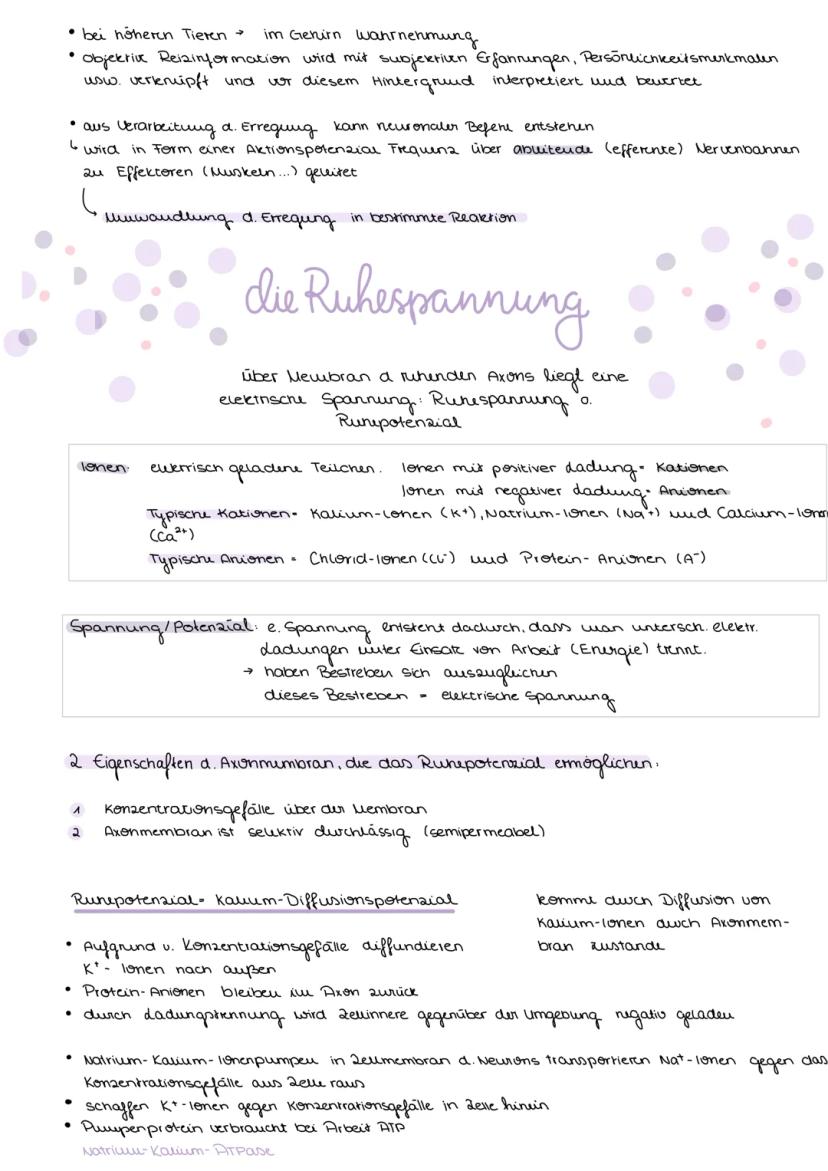 • bei höheren Tieren → im Gehirn Wahrnehmung
• objektive Reizinformation wird mit subjektiven Erfahrungen, Persönlichkeitsmerkmalen
usw. verknüpft und vor diesem Hintergrund interpretiert und bewertet
• aus Verarbeitung d. Erregung kann neuronaler Befehl entstehen
↳ wird in Form einer Aktionspotenzial Frequenz über ableitende (efferente) Nervenbahnen
zu Effektoren (Muskeln...) geleitet
↳ Umwandlung d. Erregung in bestimmte Reaktion
die Ruhespannung
über Membran d ruhenden Axons liegt eine
elektrische Spannung: Ruhespannung o.
Ruhepotenzial
Ionen: elektrisch geladene Teilchen. Ionen mit positiver Ladung= Kationen
Ionen mit negativer Ladung= Anionen
Typische Kationen= Kalium-Ionen (K+), Natrium-Ionen (Na+) und Calcium-Ionen
(Ca²⁺)
Typische Anionen = Chlorid-Ionen (Cl⁻) und Protein-Anionen (A⁻)
Spannung/Potenzial: e. Spannung entsteht dadurch, dass man untersch. elektr.
Ladungen unter Einsatz von Arbeit (Energie) trennt.
→ haben Bestreben sich auszugleichen
dieses Bestreben = elektrische Spannung
2 Eigenschaften d. Axonmembran, die das Ruhepotenzial ermöglichen:
1 Konzentrationsgefälle über der Membran
2 Axonmembran ist selektiv durchlässig (semipermeabel)
Ruhepotenzial= Kalium-Diffusionspotenzial
kommt durch Diffusion von
Kalium-Ionen durch Axonmem-
bran zustande
• Aufgrund v. Konzentrationsgefälle diffundieren
K⁺- Ionen nach außen
• Protein-Anionen bleiben im Axon zurück
• durch Ladungstrennung wird Zellinnere gegenüber der Umgebung negativ geladen
• Natrium-Kalium-Ionenpumpen in Zellmembran d. Neurons transportieren Na⁺-Ionen gegen das
Konzentrationsgefälle aus Zelle raus
• schaffen K⁺-Ionen gegen Konzentrationsgefälle in Zelle hinein
• Pumpenprotein verbraucht bei Arbeit ATP
Natrium-Kalium-ATPase